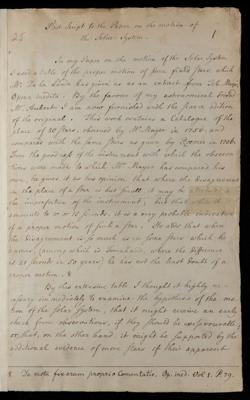 Post script to the Paper on the motion of
the Solar System.
In my Paper on the motion of the Solar System
I used a table of the proper motion of some fixed stars, which
Mr. De la Lande has given us as an extract from Tob. Mayer
Opera inedita. By the favour of my astronomical friend
Mr. Aubert I am now furnished with the edition
of the original. This work contains a Catalogue of the
place of 80 stars, observed by Mr. Mayer in 1756, and
compared with the same stars as given by Roemer in 1706.
From the goodness of the instrument with which the observa-
tions were made to which Mr. Mayer has compared his
own, he gives it as his opinion that where the disagreement
in the place of a star is but small it may be
the imperfection of the instrument, but that when it
amounts to 10 or 15 seconds, it is a very probable indication
of a proper motion of such a star. He adds that when
the disagreement is so much as in some stars which he
names, (among which is Fomahand, where the difference
is 21 seconds in 50 years) he has not the least doubt of a
proper motion.
By this extensive table I thought it highly ne-
cessary immediately to examine the hypothesis of the mo-
tion of the Solar System, that it might receive an early
check from observations, if they should be unfavourable
or that, on the other hand, it might be supported by the
additional evidence of more stars if their apparent
De motu fixarum proprio Comentatio. Op. ined. Vol 1. P. 79.